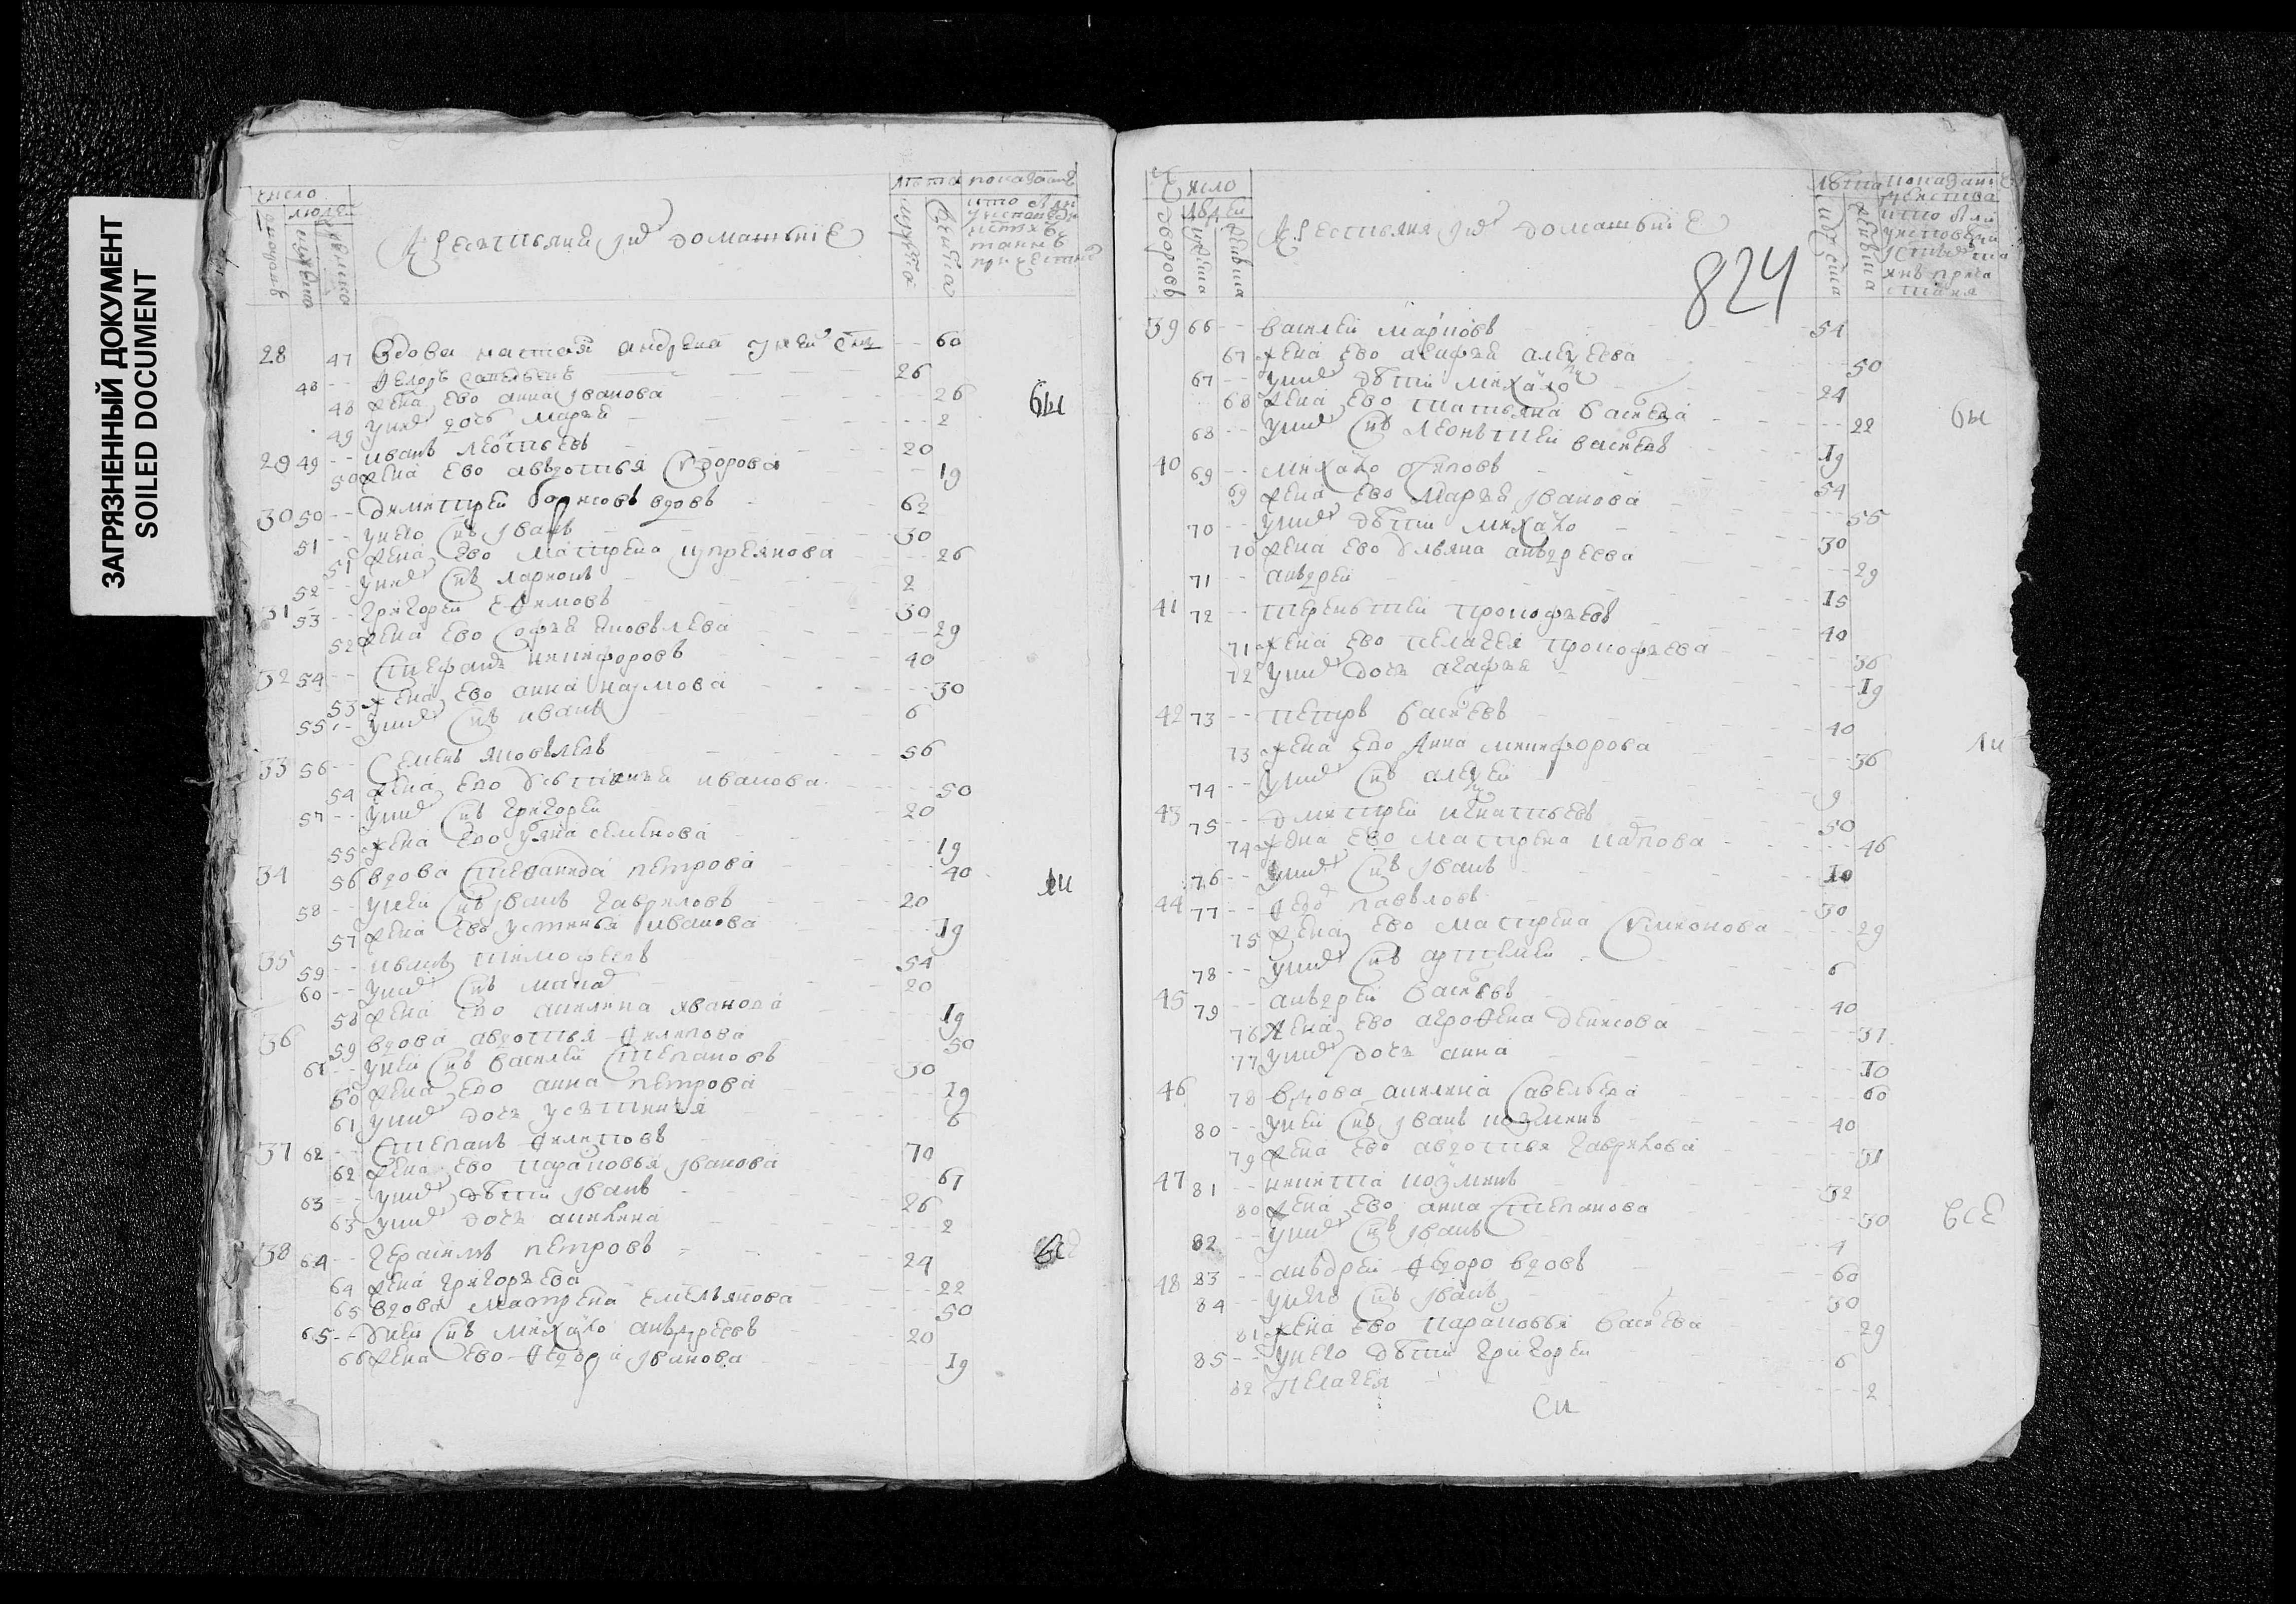 ЗАГРЯЗНЕННЫЙ ДОКУМЕНТ
SOILED DOCUMENT
число
людей
лѣта показание
Крестьяня і их домашние
28 47 Вдова настася андреева у неи 60
48 26
48 жена ево анна іванова 26
49 у них дочь марья 2
29 49 иванъ леонтьевъ 20
50 жена ево авдотья сидорова 19
30 50 димитреи борисовъ вдовъ 62
51 у него снъ іванъ 30
51 жена ево матрена купреянова 26
52 у них снъ ларионъ 2
31 53 григореи ефимовъ 30
52 жена ево софья яковлева 29
32 54 стефанъ никифоровъ 40
53 жена ево анна наумова 30
55 у них снъ иванъ 6
33 56 семенъ яковлевъ 56
54 жена ево иванова 50
57 у них снъ григореи 20
55 жена ево уляна семенова 19
34 56 вдова степанида петрова 40
58 у неи снъ іванъ гавриловъ 20
57 жена ево устинья иванова 19
35 59 иванъ тимофеевъ 54
60 у них снъ 20
58 жена ево акилина иванова 19
36 59 вдова авдотья филипова 50
61 у неи снъ василеи степановъ 30
60 жена ево анна петрова 19
61 у них дочь устинья 6
37 62 степанъ филиповъ 70
62 жена ево парасковья іванова 67
63 у них дѣти іванъ 26
63 у них дочь акилина 2
38 64 герасимъ петровъ 24
64 жена григорьева 22
65 вдова матрена емельянова 50
65 у неи снъ михаило андреевъ 20
66 жена ево іванова 19
бы
ли
все
число
людеи
дворовъ
лѣта показание
Крестьяня і их домашние
824
39 66 василеи марковъ 54
67 жена ево агафья алексеева 50
67 у них дѣти михаило 24
68 жена ево татьяна васильева 22
68 у них снъ леонътеи васильевъ 19
40 69 михаило осиповъ 54
69 жена ево марья іванова 55
70 у них дѣти михаило 30
70 жена ево ульяна андреева 29
71 андреи 15
41 72 терентеи прокофьевъ 40
71 жена ево пелагея прокофьева 36
72 у них дочь агафья 19
42 73 петръ васильевъ 40
73 жена ево анна никифорова 36
74 у них снъ алексеи 9
43 75 дмитреи игнатьевъ 50
74 жена ево матрена 46
76 у них снъ іванъ 10
44 77 федоръ павловъ 30
75 жена ево матрена симионова 29
78 у них снъ артемеи 6
45 79 андреи васильевъ 40
76 жена ево агрофена денисова 37
77 у них дочь анна 10
46 78 вдова акилина савельева 60
80 у неи снъ іванъ козминъ 40
79 жена ево авдотья гаврилова 31
47 81 никита козминъ 32
80 жена ево анна степанова 30
82 у них снъ іванъ 4
48 83 андреи федоровъ вдовъ 60
84 у него снъ іванъ 30
81 жена ево парасковья васильева 29
85 у него дѣти григореи 6
82 пелагея 2
бы
ли
все
си